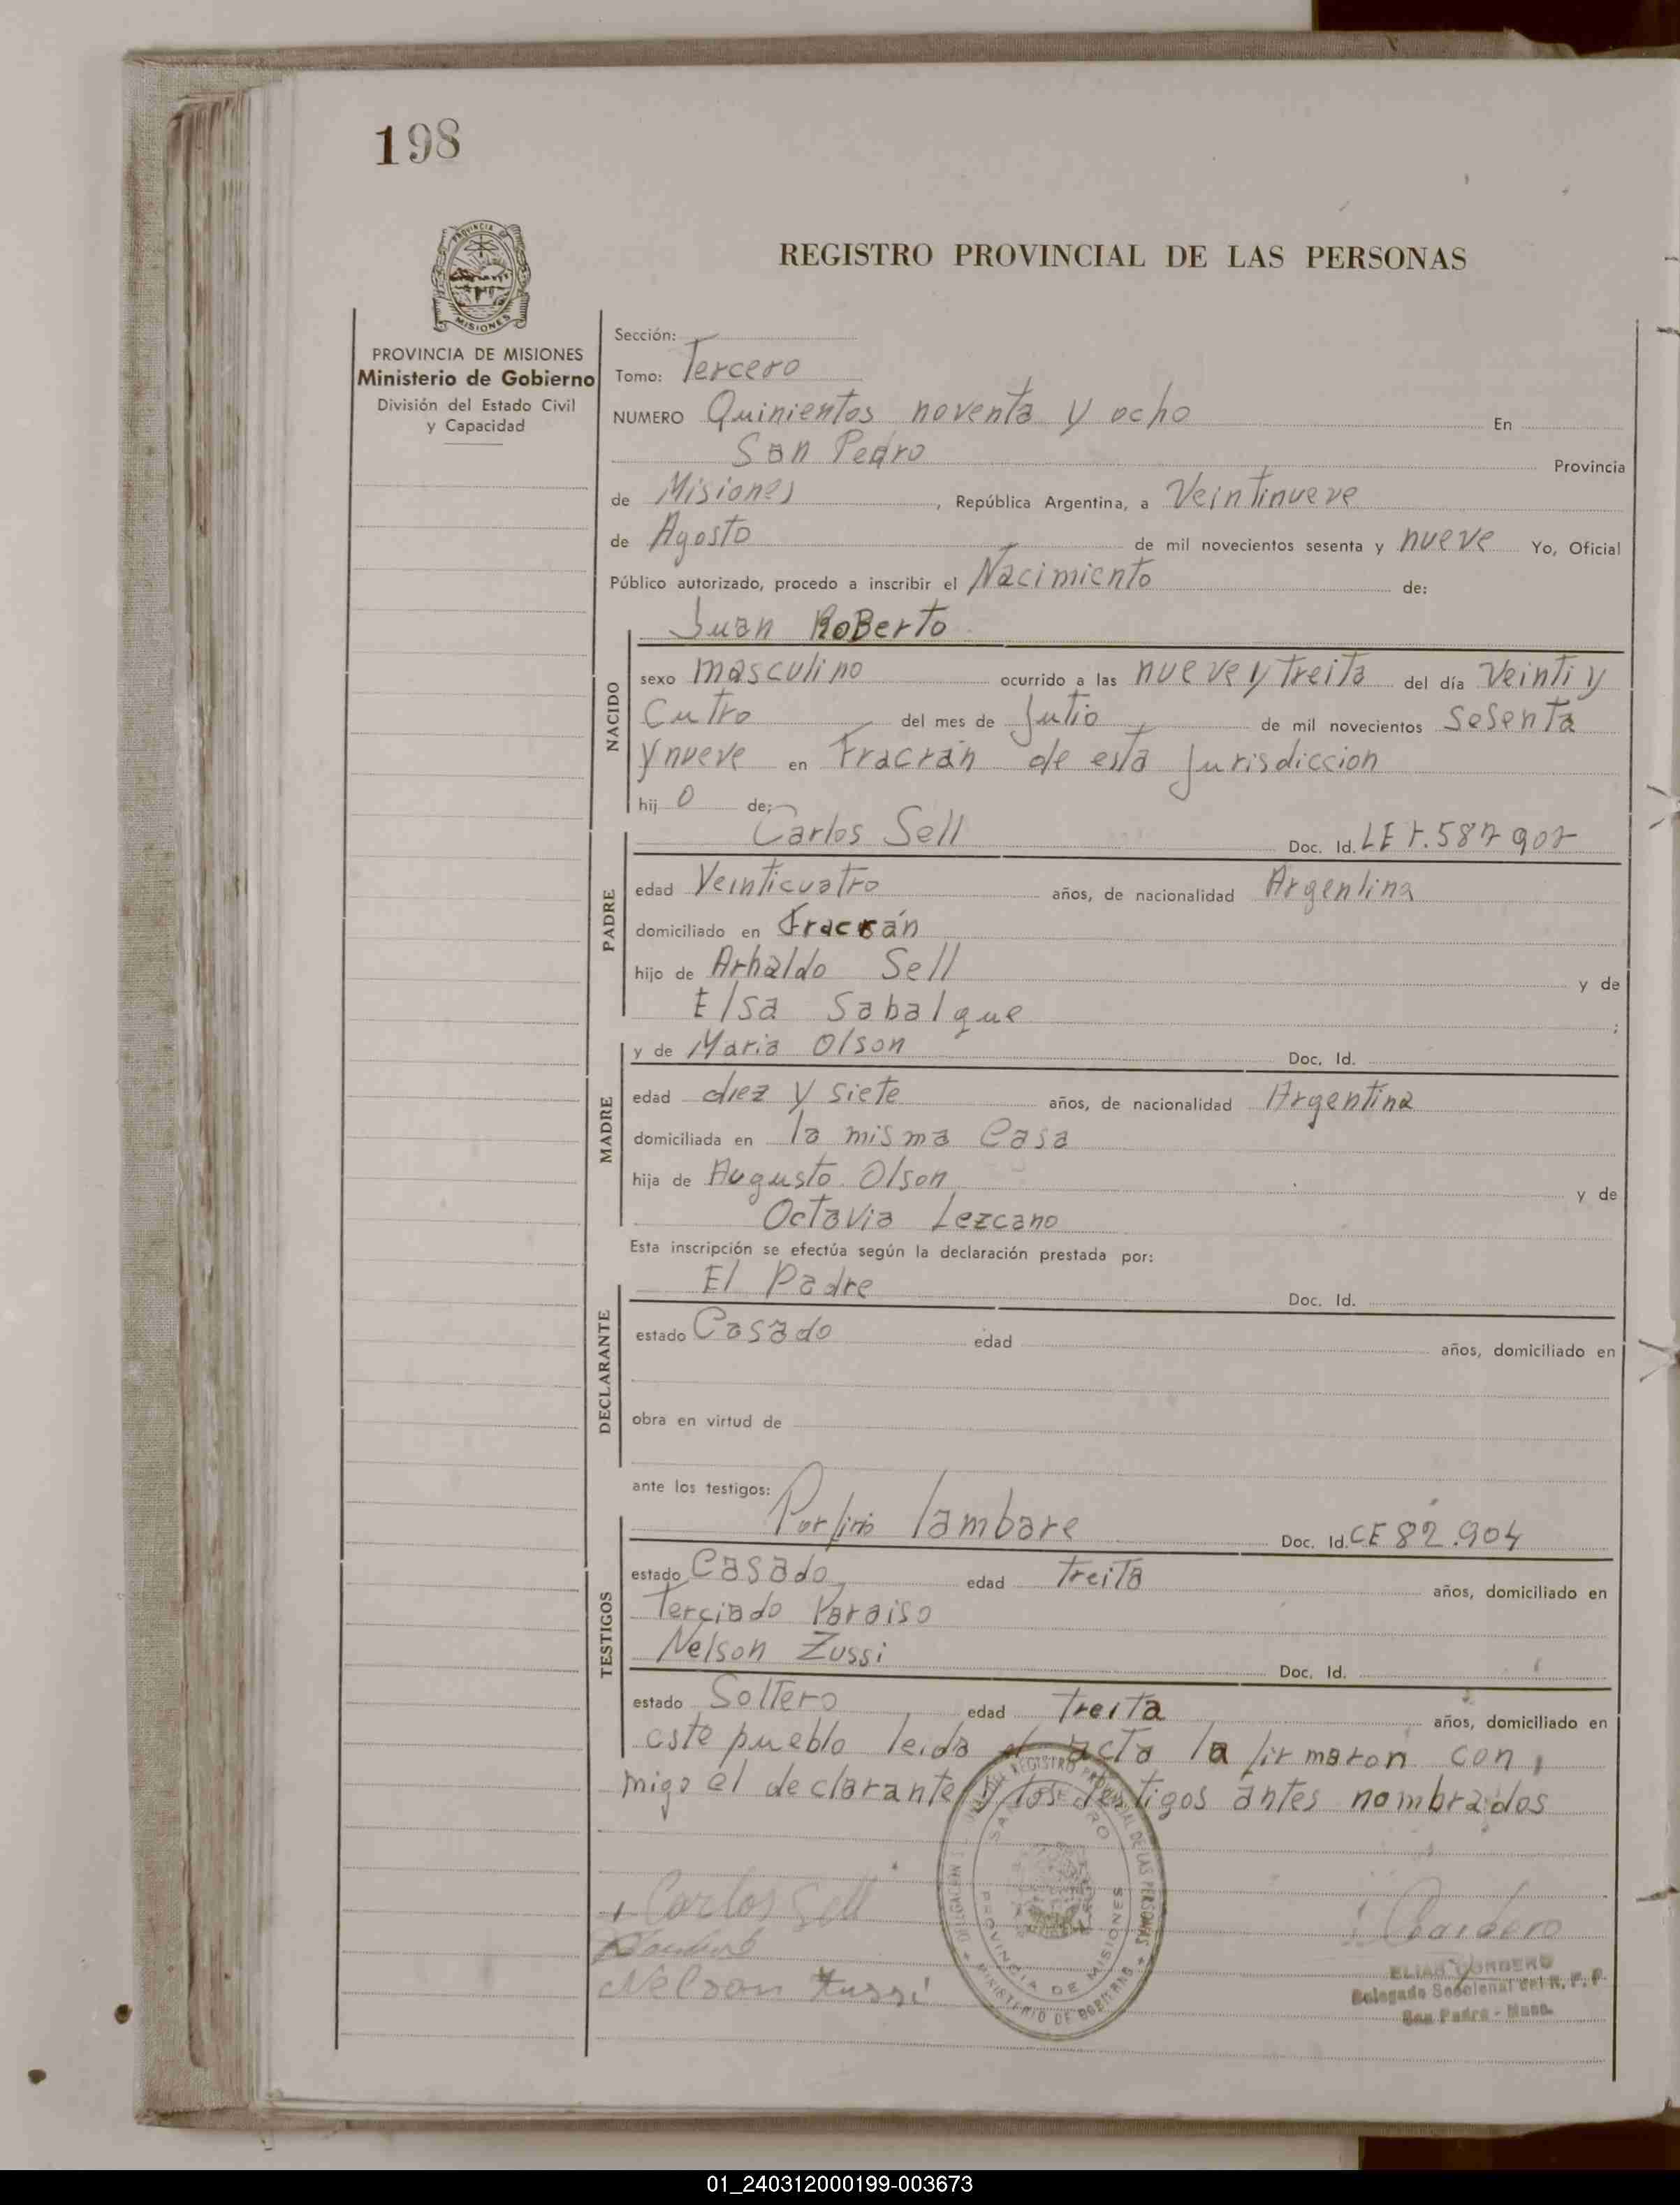 198
REGISTRO PROVINCIAL DE LAS PERSONAS
PROVINCIA
MISIONES
PROVINCIA DE MISIONES
Ministerio de Gobierno
División del Estado Civil
y Capacidad
Sección:
Tomo: Tercero
NUMERO Quinientos noventa y ocho En
San Pedro Provincia
de Misiones, República Argentina, a Veintinueve
de Agosto de mil novecientos sesenta y nueve Yo, Oficial
Público autorizado, procedo a inscribir el Nacimiento de:
NACIDO
Juan RoBerto
sexo masculino ocurrido a las nueve y treita del día Veinti y
Cutro del mes de Julio de mil novecientos SeSenta
y nueve en Fracrán de esta Jurisdiccion
hij o de:
PADRE
Carlos Sell Doc. Id. LE
edad Veinticuatro años, de nacionalidad Argentina
domiciliado en Fracrán
hijo de Arnaldo Sell y de
Elsa Sabalque ;
MADRE
y de Maria Olson Doc. Id.
edad diez y siete años, de nacionalidad Argentina
domiciliada en la misma Casa
hija de Augusto Olson y de
Octavia Lezcano
Esta inscripción se efectúa según la declaración prestada por:
DECLARANTE
El Padre Doc. Id.
estado Casado edad años, domiciliado en
obra en virtud de
ante los testigos:
TESTIGOS
lambare Doc. Id. CE 82.904
estado Casado edad treita años, domiciliado en
Terciado Paraiso
Nelson Zussi Doc. Id.
estado Soltero edad treita años, domiciliado en
este pueblo leida el acta la firmaron con
migo el declarante y los testigos antes nombrados
DELEGACION DEL REGISTRO PROVINCIAL DE LAS PERSONAS
SAN PEDRO
PROVINCIA DE MISIONES
MINISTERIO DE GOBIERNO
Carlos Sell
Nelson Zussi
ELIAS CORDERO
Delegado Seccional del R. P. P.
San Pedro - Mnes.
01_240312000199-003673